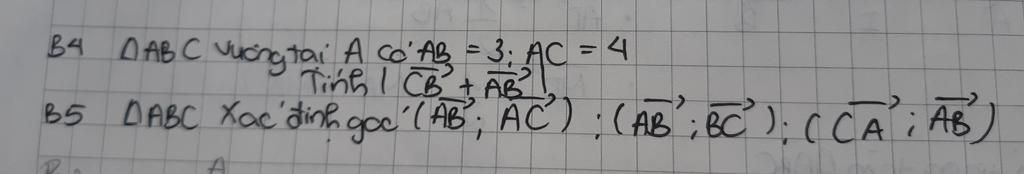 B4 ΔABC vuông tại A có AB = 3; AC = 4
Tính | \overrightarrow{CB} + \overrightarrow{AB} |
B5 ΔABC xác định góc (\overrightarrow{AB}; \overrightarrow{AC}); (\overrightarrow{AB}; \overrightarrow{BC}); (\overrightarrow{CA}; \overrightarrow{AB})